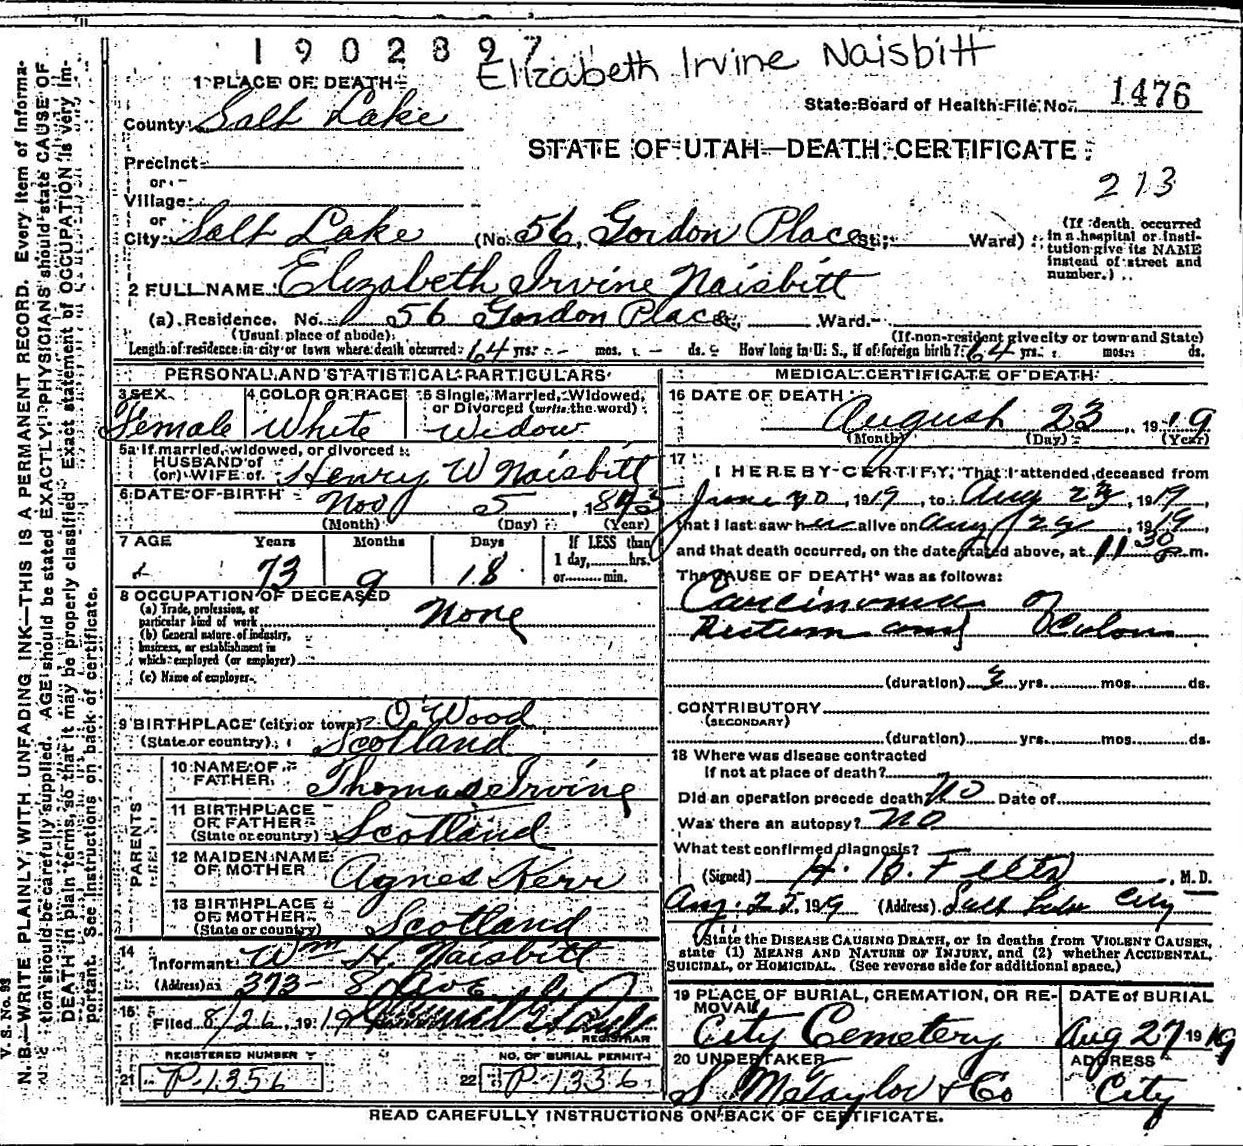 1902897
Elizabeth Irvine Naisbitt
1 PLACE OF DEATH
State Board of Health File No. 1476
County Salt Lake
STATE OF UTAH—DEATH CERTIFICATE
Precinct
213
or
Village
or
City Salt Lake (No. 56, Gordon Place St; Ward)
(If death occurred in a hospital or institution give its NAME instead of street and number.)
2 FULL NAME Elizabeth Irvine Naisbitt
(a) Residence. No. 56 Gordon Place, Ward.
(Usual place of abode) (If non-resident give city or town and State)
Length of residence in city or town where death occurred 64 yrs. - mos. - ds. How long in U. S., if of foreign birth? 64 yrs. mos. ds.
PERSONAL AND STATISTICAL PARTICULARS
3 SEX Female
4 COLOR OR RACE White
5 Single, Married, Widowed, or Divorced (write the word) Widow
5a If married, widowed, or divorced
HUSBAND of
(or) WIFE of Henry W Naisbitt
6 DATE OF BIRTH Nov 5, 1845
(Month) (Day) (Year)
7 AGE Years Months Days If LESS than
73 9 18 1 day, hrs.
or min.
8 OCCUPATION OF DECEASED
(a) Trade, profession, or particular kind of work None
(b) General nature of industry, business, or establishment in which employed (or employer)
(c) Name of employer
9 BIRTHPLACE (city or town) O. Wood
(State or country) Scotland
PARENTS
10 NAME OF FATHER Thomas Irvine
11 BIRTHPLACE OF FATHER (State or country) Scotland
12 MAIDEN NAME OF MOTHER Agnes Kerr
13 BIRTHPLACE OF MOTHER (State or country) Scotland
14 Informant Wm H. Naisbitt
(Address) 373 - 8 Ave
15 Filed 8/26, 1919
REGISTRAR
REGISTERED NUMBER
21 P-1356
NO. OF BURIAL PERMIT
22 P-1336
MEDICAL CERTIFICATE OF DEATH
16 DATE OF DEATH August 23, 1919
(Month) (Day) (Year)
17 I HEREBY CERTIFY, That I attended deceased from
June 20, 1919, to Aug 23, 1919
that I last saw her alive on Aug 23, 1919,
and that death occurred, on the date stated above, at 11 30 P. m.
The CAUSE OF DEATH* was as follows:
Carcinoma of
Rectum and Colon
(duration) 3 yrs. mos. ds.
CONTRIBUTORY
(SECONDARY)
(duration) yrs. mos. ds.
18 Where was disease contracted
if not at place of death?
Did an operation precede death? No Date of
Was there an autopsy? No
What test confirmed diagnosis?
(Signed) H. B. Felts, M. D.
Aug. 25, 1919 (Address) Salt Lake City
*State the DISEASE CAUSING DEATH, or in deaths from VIOLENT CAUSES,
state (1) MEANS AND NATURE OF INJURY, and (2) whether ACCIDENTAL,
SUICIDAL, or HOMICIDAL. (See reverse side for additional space.)
19 PLACE OF BURIAL, CREMATION, OR REMOVAL City Cemetery
DATE of BURIAL Aug 27 1919
20 UNDERTAKER S. M Taylor & Co
ADDRESS City
READ CAREFULLY INSTRUCTIONS ON BACK OF CERTIFICATE.
V. S. No. 93
N. B.—WRITE PLAINLY, WITH UNFADING INK—THIS IS A PERMANENT RECORD. Every item of information should be carefully supplied. AGE should be stated EXACTLY. PHYSICIANS should state CAUSE OF DEATH in plain terms, so that it may be properly classified. Exact statement of OCCUPATION is very important. See instructions on back of certificate.